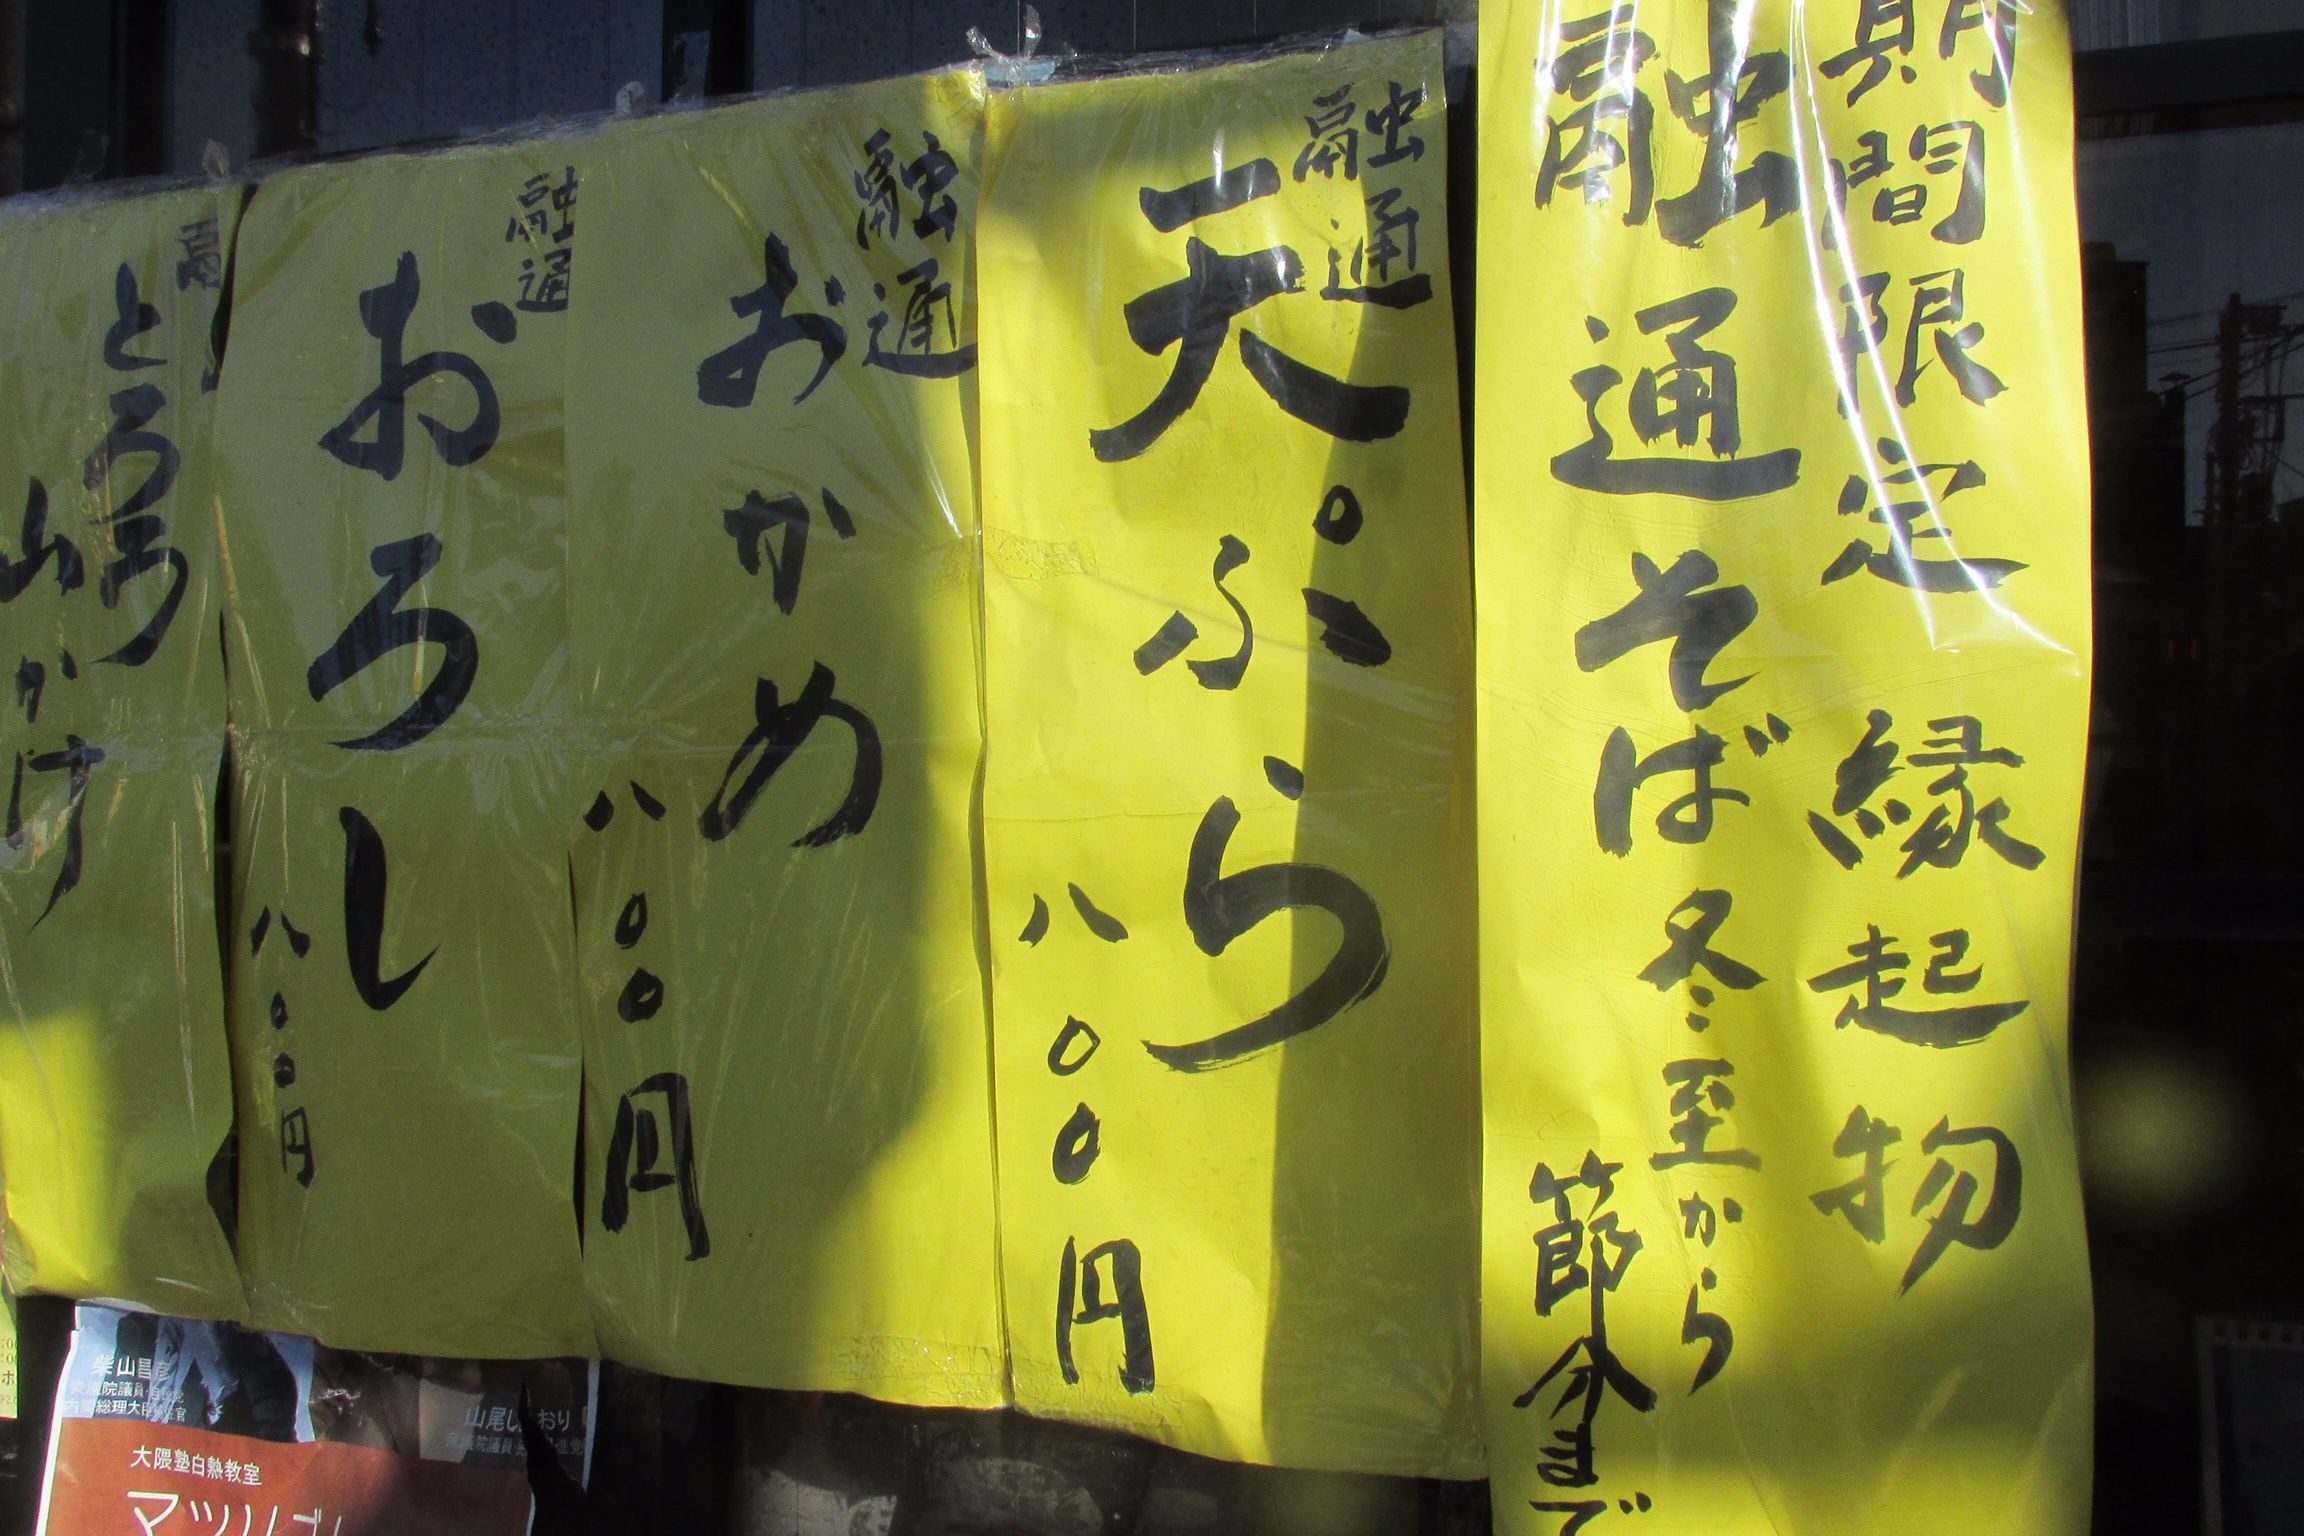 期間限定 縁起物
融通そば 冬至から
節分まで
融通
天ぷら
八〇〇円
融通
おかめ
八〇〇円
融通
おろし
八〇〇円
とろろ
山かけ
柴山昌彦
衆議院議員・自民党
内閣総理大臣補佐官
山尾しおり
大隈塾白熱教室